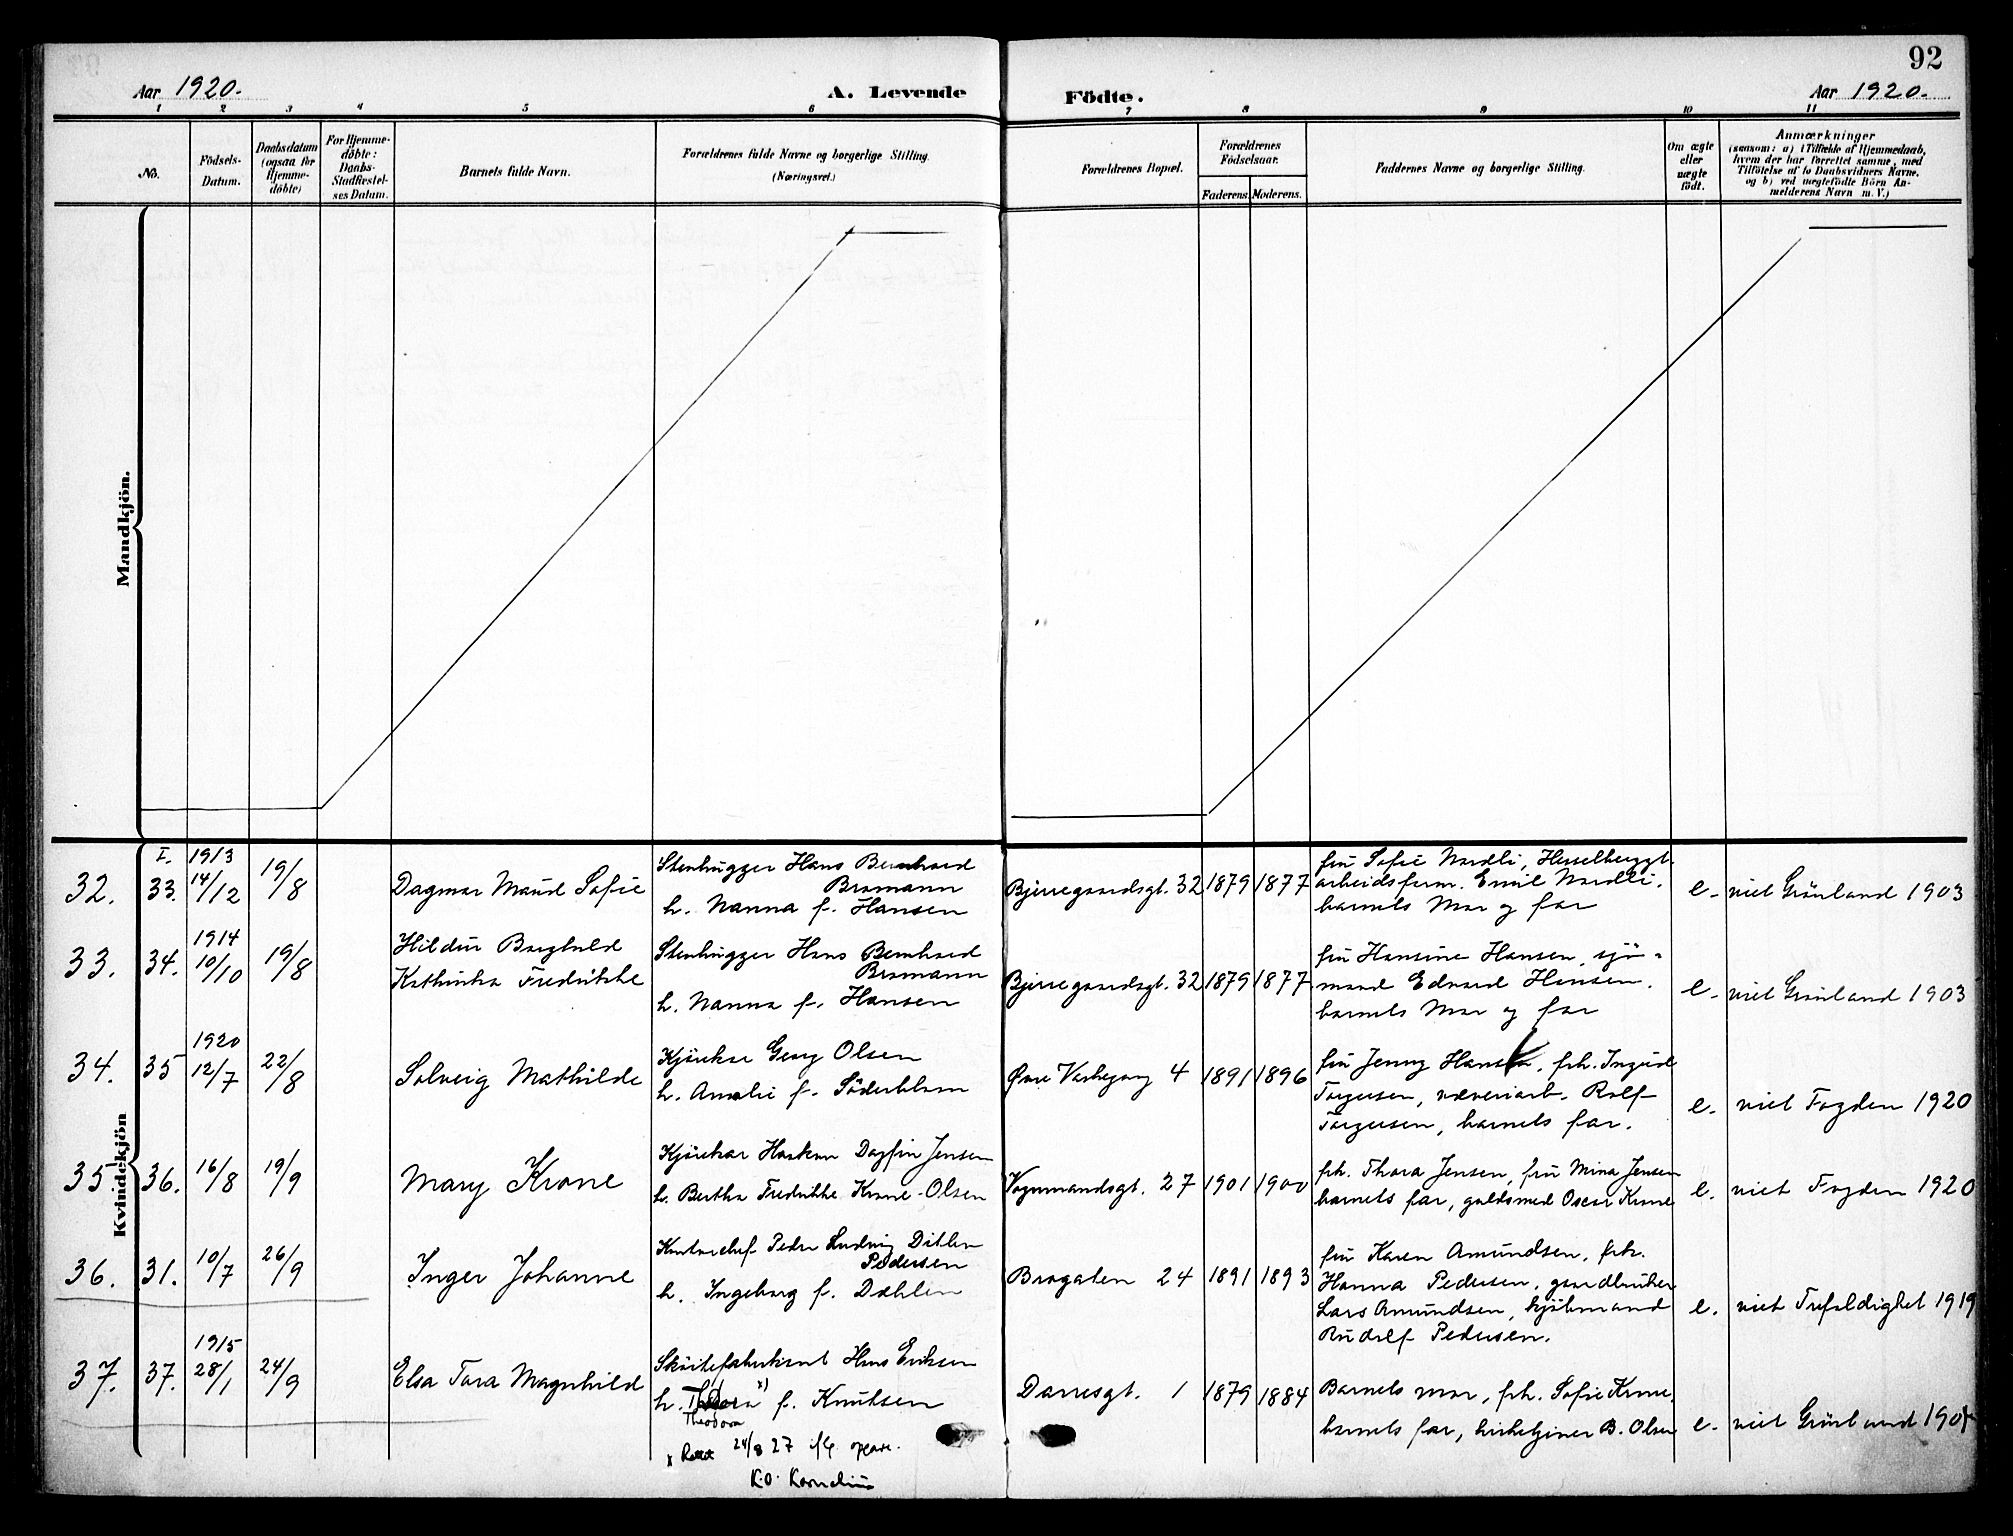 92
Aar 1920.
A. Levende
Födte.
Aar 1920.
1 2 3 4 5 6 7 8 9 10 11
No.
Födsels-
Datum.
Daabsdatum
(ogsaa for
Hjemme-
döbte)
For Hjemme-
döbte:
Daabs-
Stadfæstel-
ses Datum.
Barnets fulde Navn.
Forældrenes fulde Navne og borgerlige Stilling.
(Næringsvei.)
Forældrenes Bopæl.
Forældrenes
Födselsaar.
Faderens. Moderens.
Faddernes Navne og borgerlige Stilling.
Om ægte
eller
uægte
født.
Anmærkninger
(saasom: a) i Tilfælde af Hjemmedaab,
hvem der har forrettet samme, med
Tilföielse af to Daabsvidners Navne,
og b) ved uægtefödte Börn An-
melderens Navn m. V.)
Mandkjön.
Kvindekjön
32. I. 33. 1913 14/12 19/8
Dagmar Maud Sofie
Stenhugger Hans Bernhard
Bromann
h. Nanna f. Hansen
Bjerregaardsgt. 32 1879 1877
fru Sofie Nordli, Hesselberggt.
arbeidsform. Emil Nordli.
barnets Mor og far
e. viet Grönland 1903
33. 34. 1914 10/10 19/8
Hildur Borghild
Kathinka Fredrikke
Stenhugger Hans Bernhard
Bromann
h. Nanna f. Hansen
Bjerregaardsgt. 32 1879 1877
fru Hansine Hansen, sjö-
mand Edvard Hansen.
barnets Mor og far
e. viet Grönland 1903
34. 35 1920 12/7 22/8
Solveig Mathilde
Kjörekar Georg Olsen
h. Amalie f. Söderblom
Øvre Vaskegang 4 1891 1896
fru Jenny Hansen, frk. Ingrid
Torgersen, væveriarb. Rolf
Torgersen, barnets far.
e. viet Fogden 1920
35. 36. 16/8 19/9
Mary Krone
Kjörekar Haakon Dagfin Jensen
h. Bertha Fredrikke Krone-Olsen
Vognmandsgt. 27 1901 1900
frk. Thora Jensen, fru Mina Jensen
barnets far, guldsmed Oscar Krone
e. viet Fogden 1920
36. 31. 10/7 26/9
Inger Johanne
Kontorchef Peder Ludvig Ditlev
Pedersen
h. Ingeborg f. Dahlen
Brogaten 24 1891 1893
fru Karen Amundsen, frk.
Hanna Pedersen, gaardbruker
Lars Amundsen, kjöbmand
Rudolf Pedersen.
e. viet Trefoldighet 1919
37. 37. 1915 28/1 24/9
Elsa Tora Magnhild
Sköitefabrikant Hans Eriksen
h. x) f. Knutsen
Theodora
x Rettet 24/8 27 ifg. opgave.
K.O. Kornelius
Darresgt. 1 1879 1884
Barnets mor, frk. Sofie Krone,
barnets far, kirketjener B. Olsen
e. viet Grönland